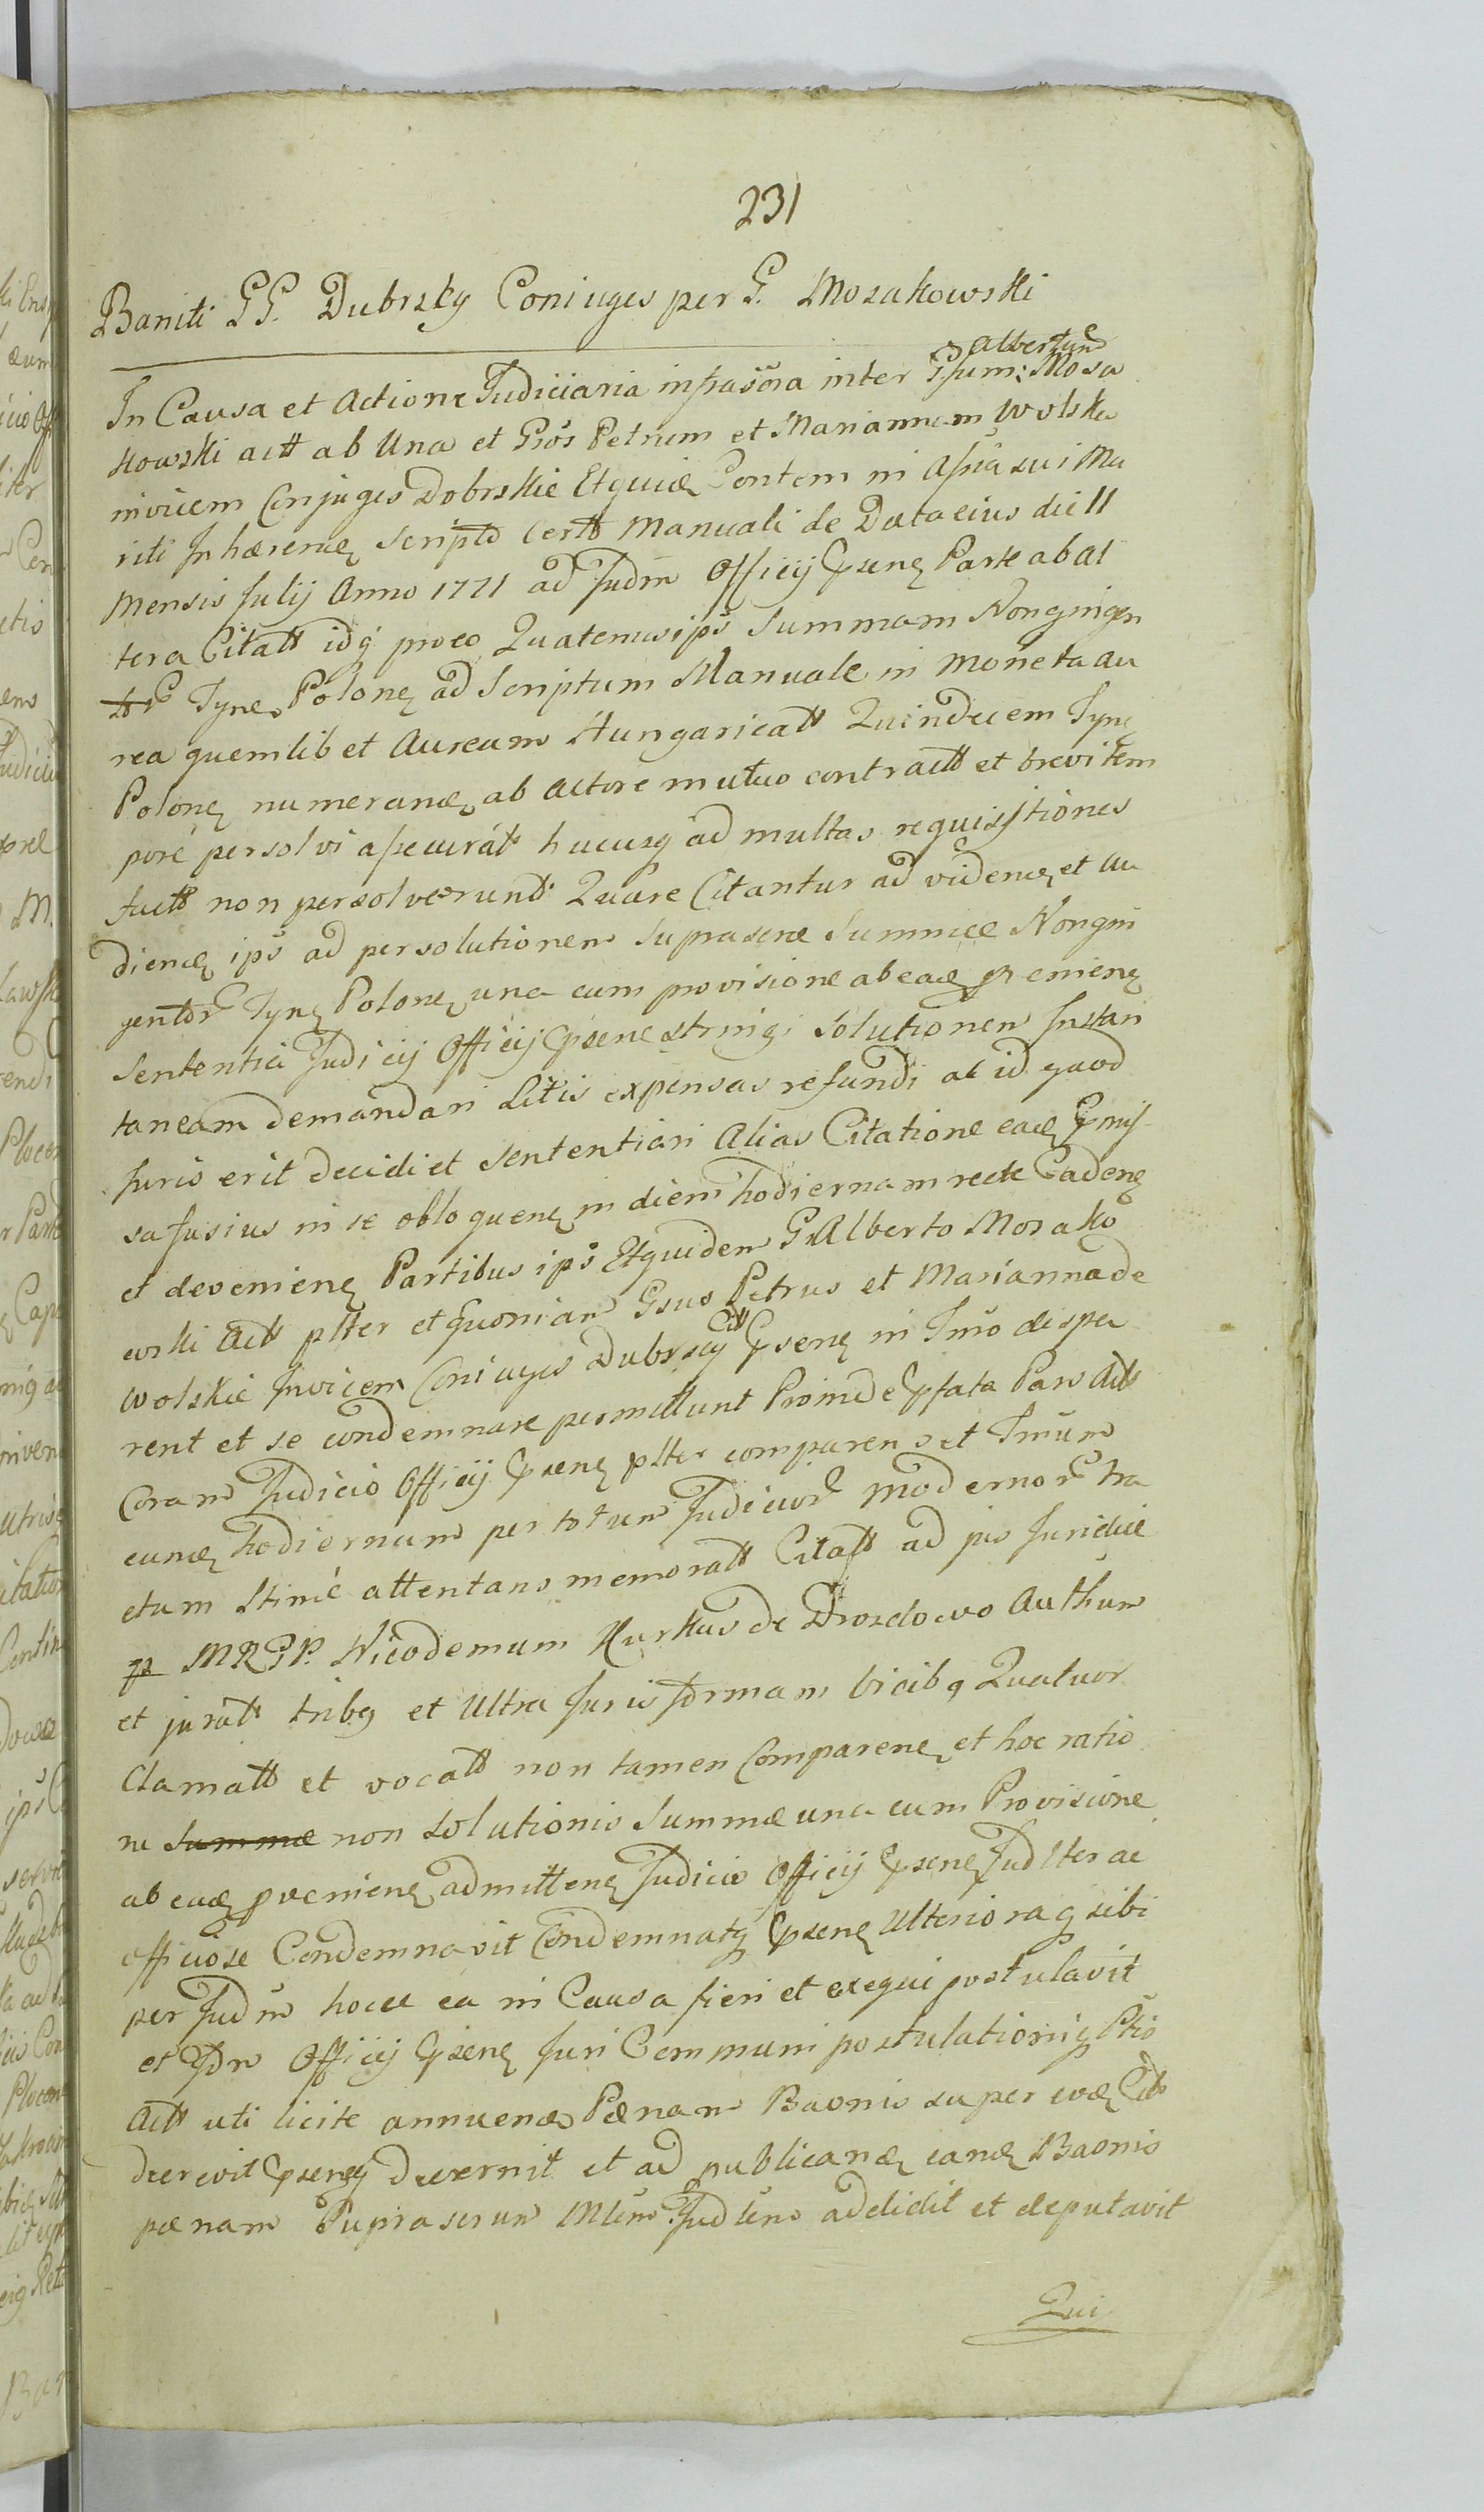 231
Baniti GG. Dubrsky Coniuges per G. Mosakowski
Albertum
In Causa et Actione Judiciaria infrascra inter Gsum: Mosa
kowski actt ab Una et Gsos Petrum et Mariannam Wolska
invicem Conjuges Dobrskie Etquidē Contem in assia sui Ma
riti Inhærenē scripto certo Manuali de Data eius die 11
Mensis Julij Anno 1771 ad Judm Officij Psenē Parte ab Al
tera Citatt idq proeo Quatenus ips Summam Nongingen
tor Tynē Polonē ad Scriptum Manuale in Moneta Au
rea quemlibet Aureum Hungaricatt Quindecem Tynē
Polonē numerandē ab Actore mutuo contractt et brevi tem
pore persolvi assecurāt hucusq ad multas requisitiones
factt non persolverunt Quare Citantur ad videndē et au
diendē ips ad persolutionem Suprascræ Summæ Nongin
gentor Tynē Polonē una cum provisione ab eadē pvenienē
Sententia Judicij Officij Psenē stringi solutionem Instan
taneam demandari Litis expensas refundi ac id quod
Juris erit decidi et sententiari Alias Citatione eadē Pmis
sa fusius in se obloquenē in diem hodiernam recte Cadenē
et devenienē Partibus ips Etquidem G. Alberto Mosako
wski Actt plter et Quoniam Gsus Petrus et Marianna de
Wolskie Invicem Coniuges Dubrscy Citt Psenē in Tmo despa
rent et se condemnare permittunt Proinde Pfata Pars Actt
Coram Judicio Officij Psenē plter comparens et Tmum
eundē hodiernum per totum Judicior Modernor tra
ctum Stime attentans memoratt Citatt ad jus Juridice
p MRGP. Nicodemum Kurkus de Drozdowo Authum
et jurāt tribq et Ultra Juris formam vicibq Quatuor
Clamatt et vocatt non tamen Comparenē et hoc ratio
ne Summæ non solutionis Summæ una cum Provisione
ab eadē pvenienē admittenē Judicio Officij Psenē Judlter ac
officiose Condemnavit Condemnatq Psenē Ulterioraq sibi
per Judm hocce ea in Causa fieri et exequi postulavit
et Idm Officij Psenē Juri Communi postulationiq Ptis
Actt uti licite annuendo Pœnam Baonis super eosdē Citt
decrevit Psenēq decernit et ad publicandē eandē Baonis
pœnam Suprascrum Mlem Judlem addidit et deputavit
Qui